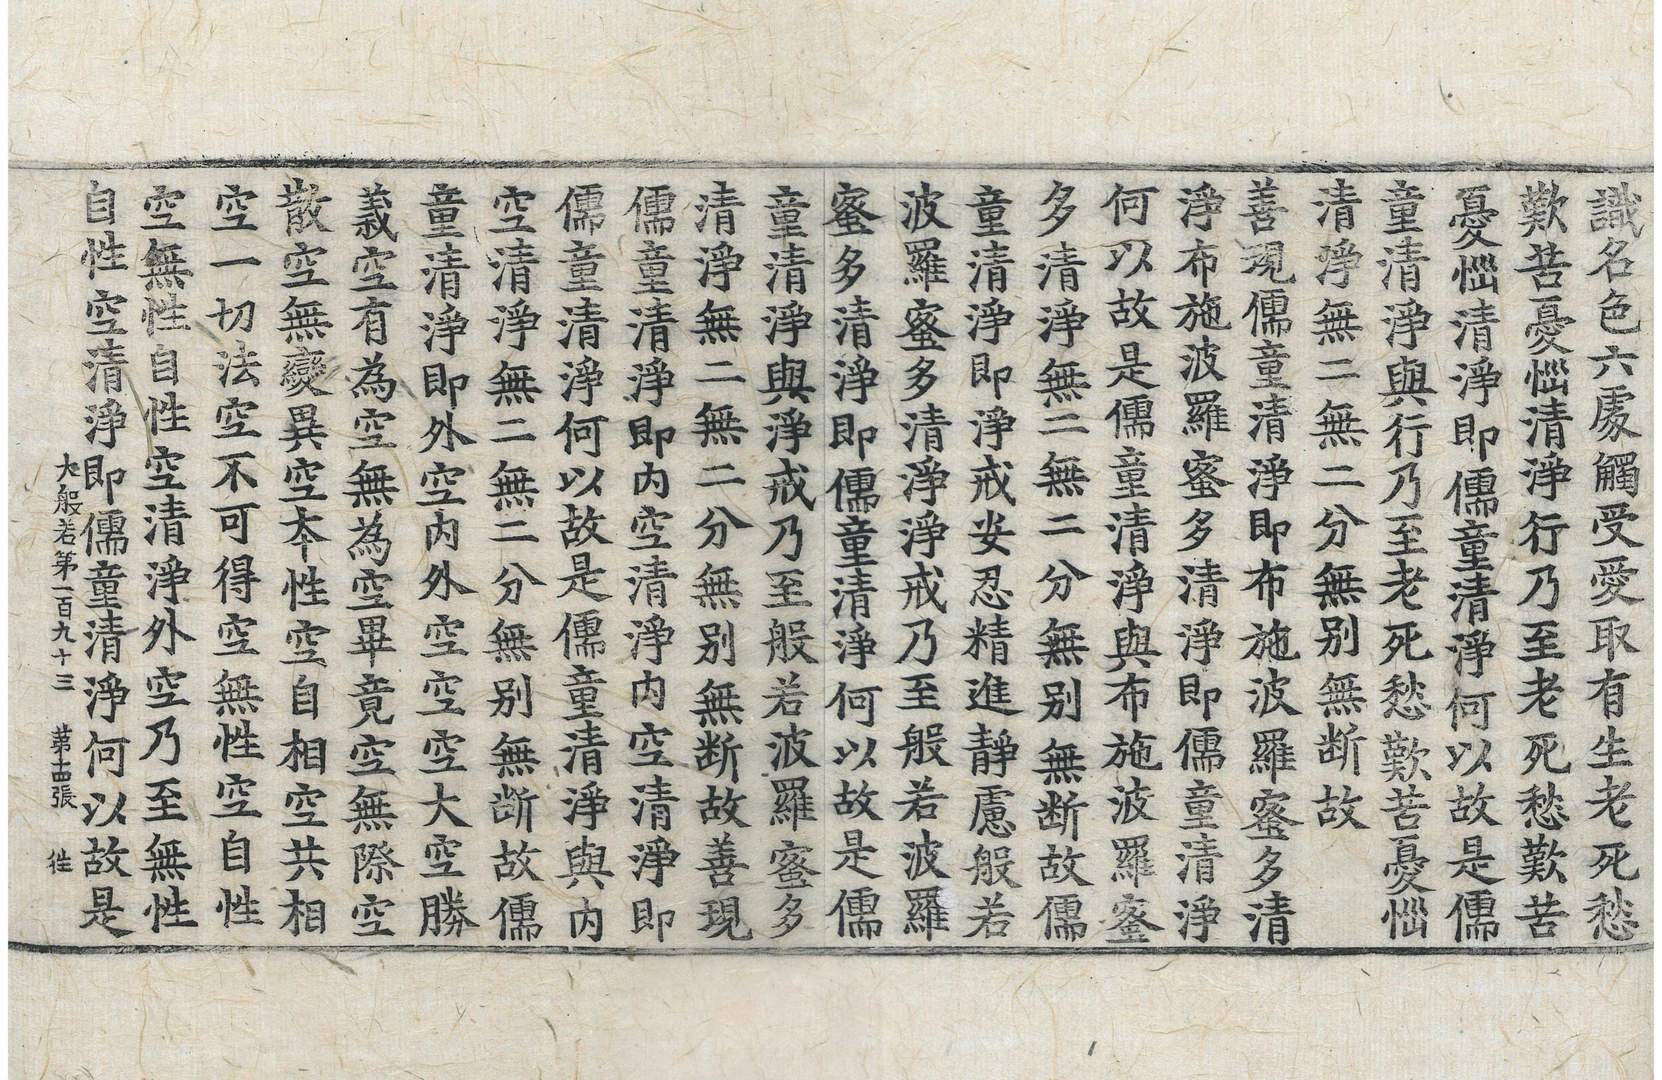 識名色六處觸受愛取有生老死愁
歎苦憂惱清淨行乃至老死愁歎苦
憂惱清淨即儒童清淨何以故是儒
童清淨與行乃至老死愁歎苦憂惱
清淨無二無二分無別無斷故
善現儒童清淨即布施波羅蜜多清
淨布施波羅蜜多清淨即儒童清淨
何以故是儒童清淨與布施波羅蜜
多清淨無二無二分無別無斷故儒
童清淨即淨戒安忍精進靜慮般若
波羅蜜多清淨淨戒乃至般若波羅
蜜多清淨即儒童清淨何以故是儒
童清淨與淨戒乃至般若波羅蜜多
清淨無二無二分無別無断故善現
儒童清淨即内空清淨内空清淨即
儒童清淨何以故是儒童清淨與内
空清淨無二無二分無別無断故儒
童清淨即外空内外空空空大空勝
義空有為空無為空畢竟空無際空
散空無變異空本性空自相空共相
空一切法空不可得空無性空自性
空無性自性空清淨外空乃至無性
自性空清淨即儒童清淨何以故是
大般若第一百九十三 第十四張 徃